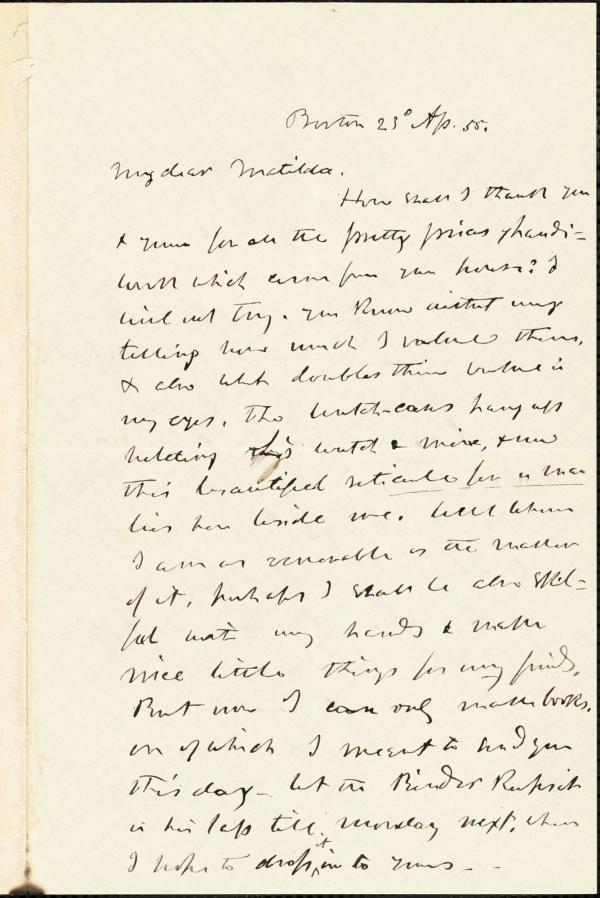 Boston 23d Ap. 55.
My dear Matilda.
How shall I thank you
& yours for all the pretty pieces of handi-
work which come from your house? I
will not try. you know without my
telling how much I value them,
& also what doubles their value in
my eyes. The watch-cases hang up
holding watch & mine, & now
this beautiful reticule for a man
lies here beside me. Well when
I am as venerable as the maker
of it, perhaps I shall be also skil-
ful with my hands & make
nice little things for my friends.
But now I can only make books,
one of which I meant to send you
this day — but the Binder keeps it
in his lap till Monday next, when
I hope to drop it into yours —